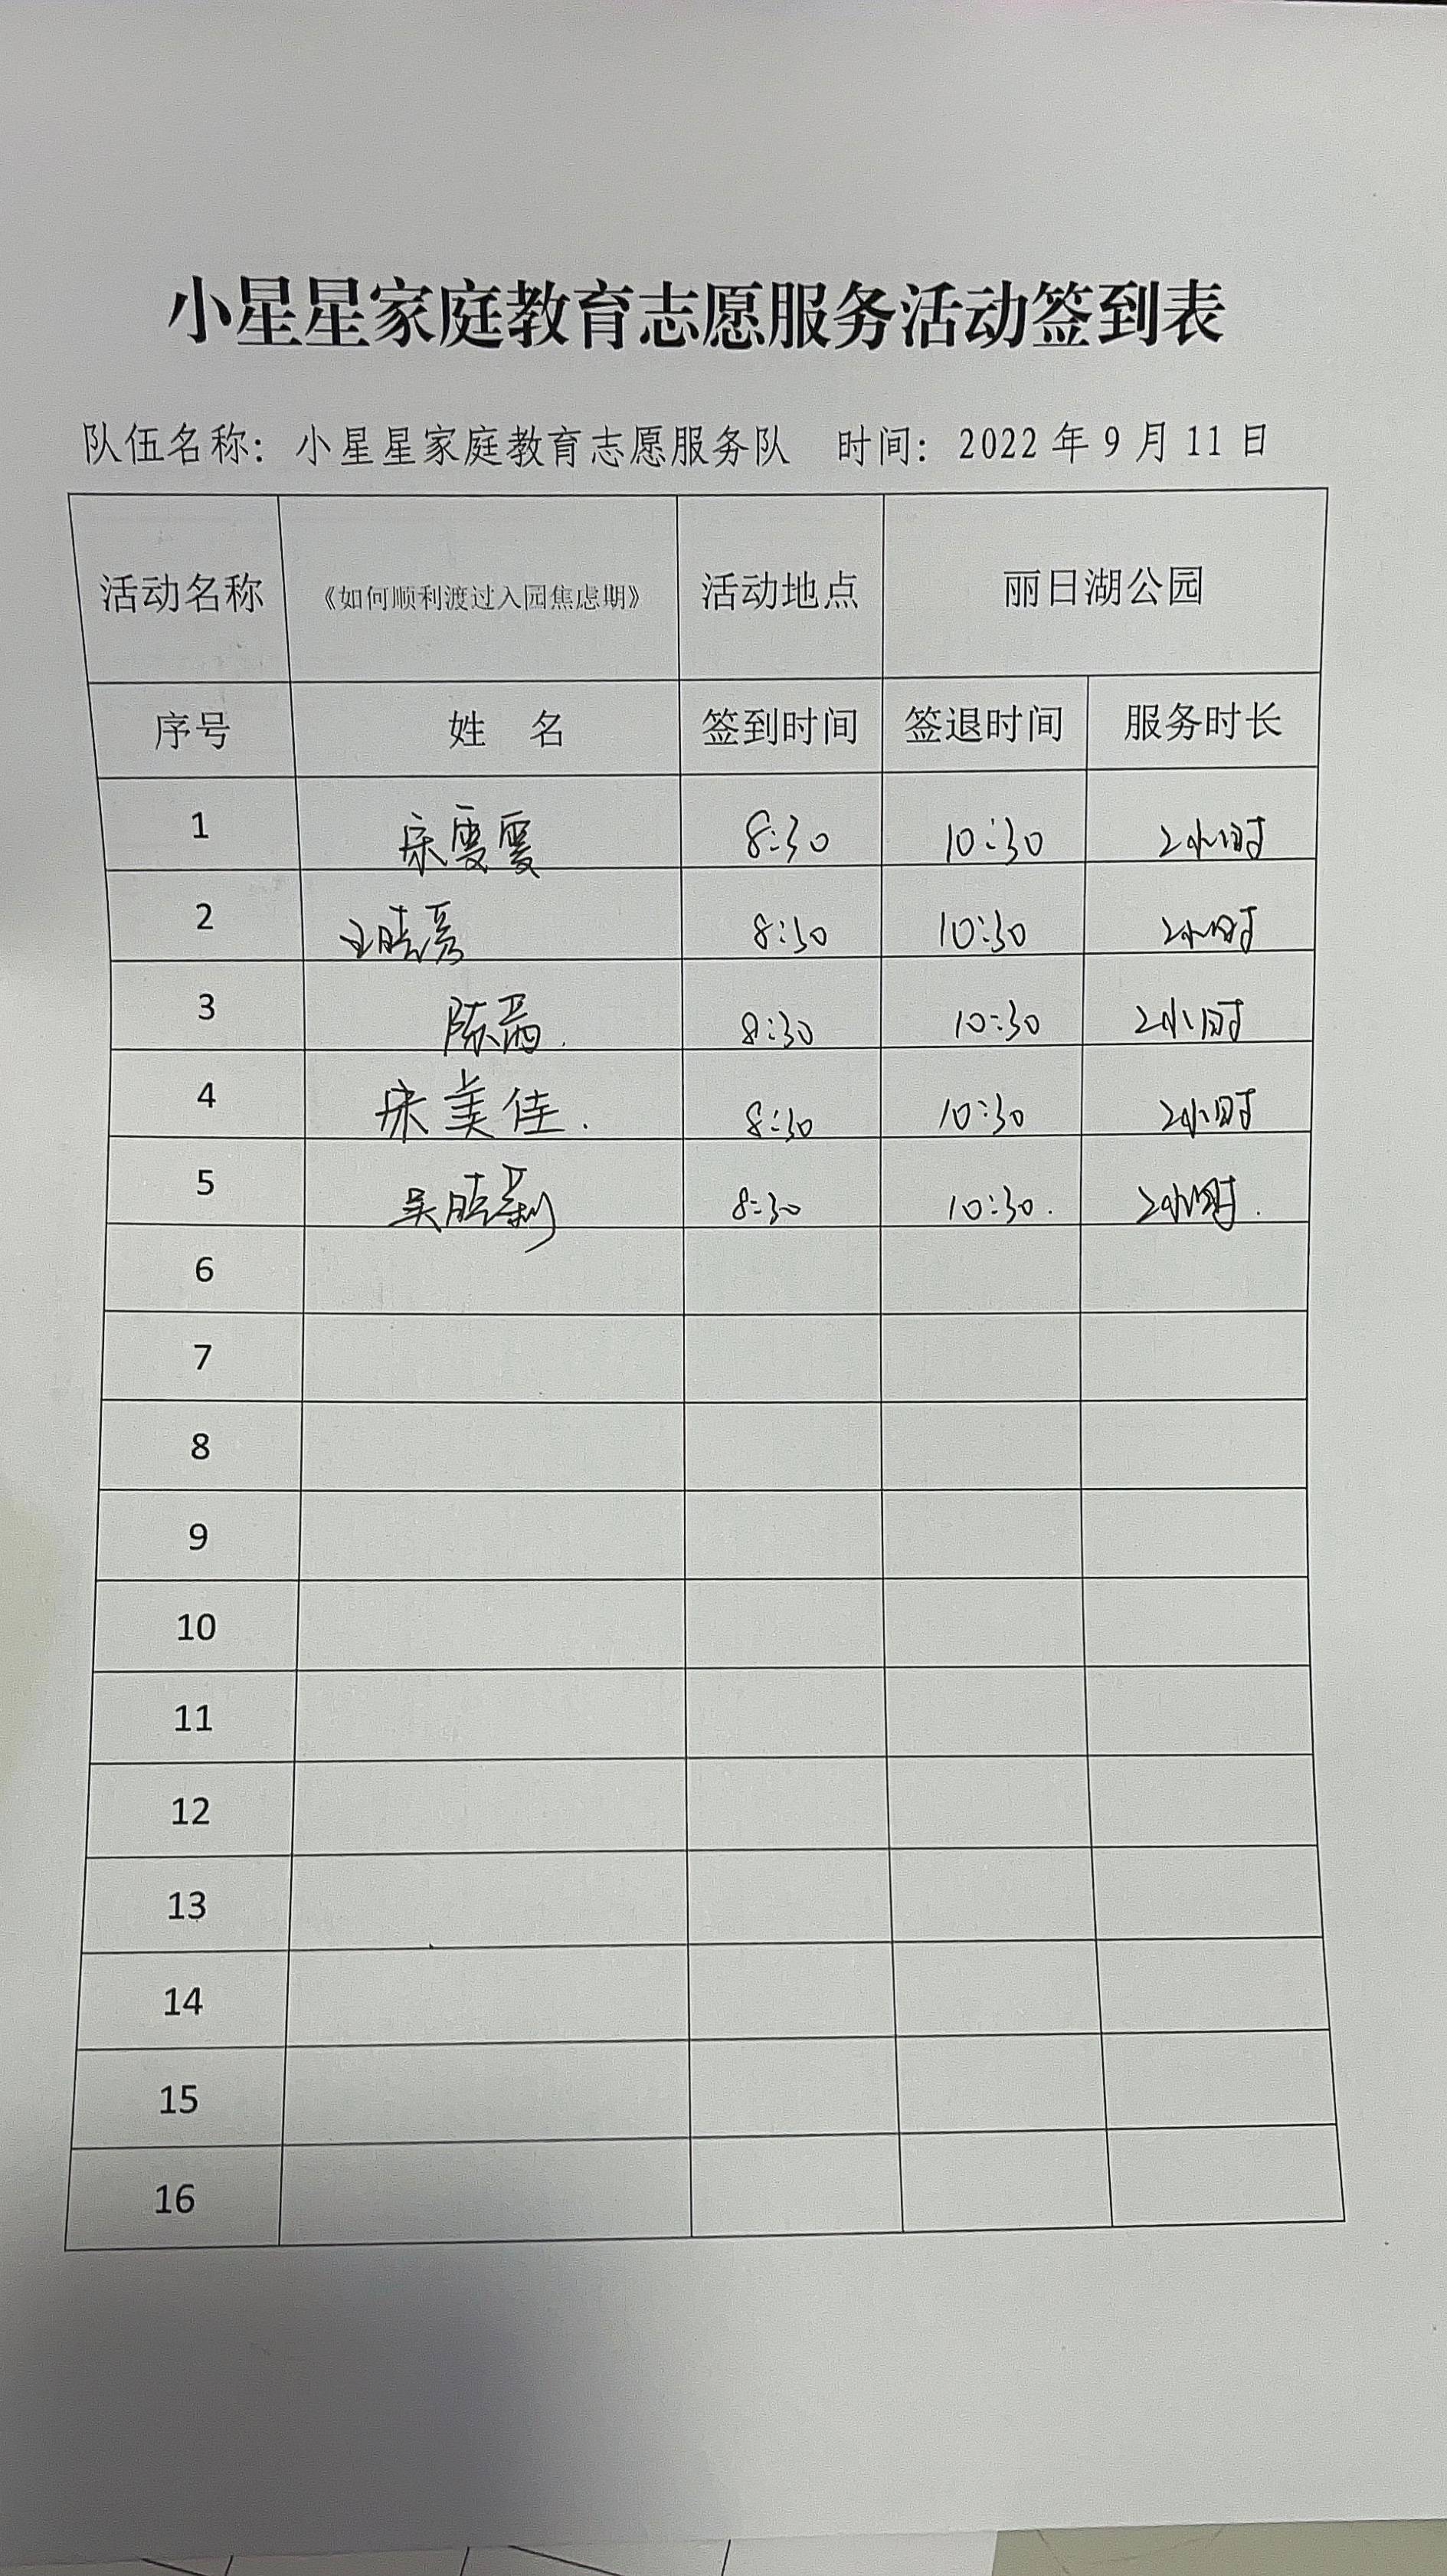 小星星家庭教育志愿服务活动签到表
队伍名称：小星星家庭教育志愿服务队 时间：2022 年 9 月 11 日
活动名称 《如何顺利渡过入园焦虑期》 活动地点 丽日湖公园
序号 姓 名 签到时间 签退时间 服务时长
1 宋雯雯 8:30 10:30 2小时
2 王晓彦 8:30 10:30 2小时
3 陈 8:30 10:30 2小时
4 宋美佳. 8:30 10:30 2小时
5 吴晓莉 8:30 10:30. 2小时.
6
7
8
9
10
11
12
13
14
15
16